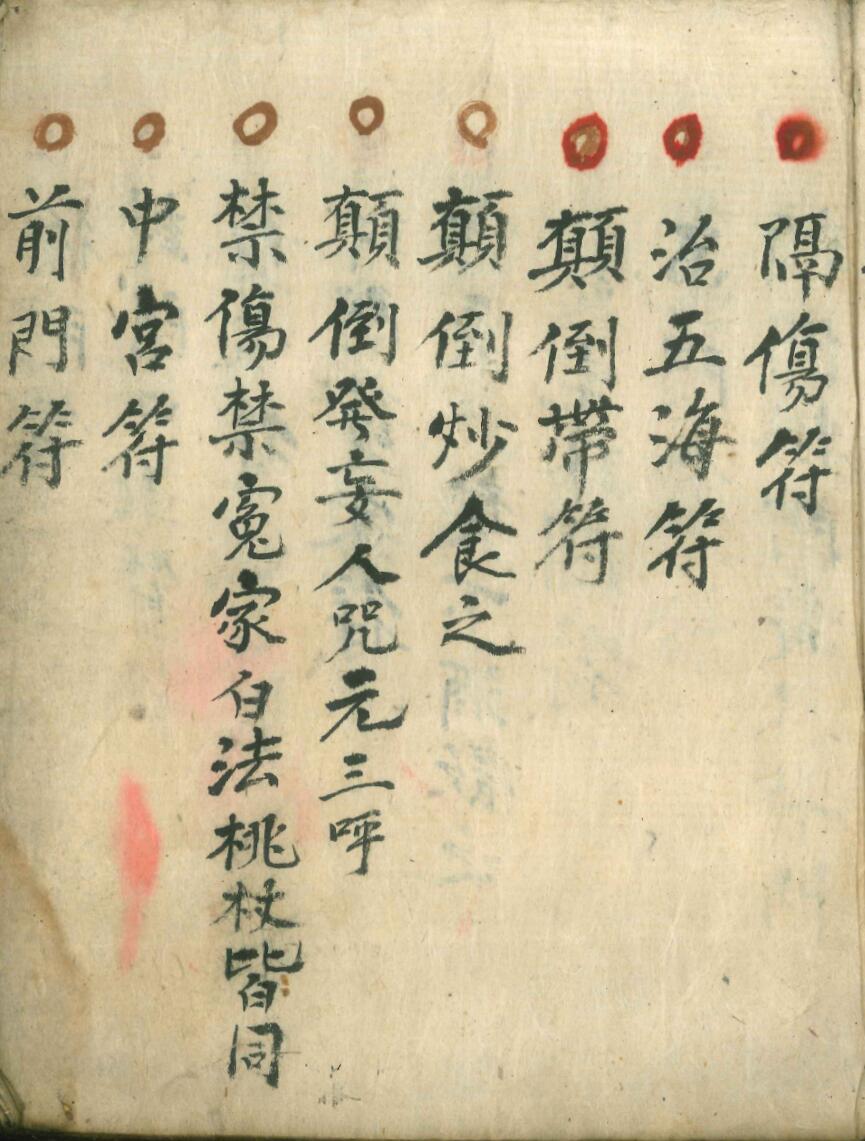 隔傷符
治五海符
顛倒帶符
顛倒炒食之
顛倒發妄人咒元三呼
禁傷禁禁冤家白法桃杖皆同
中宮符
前門符